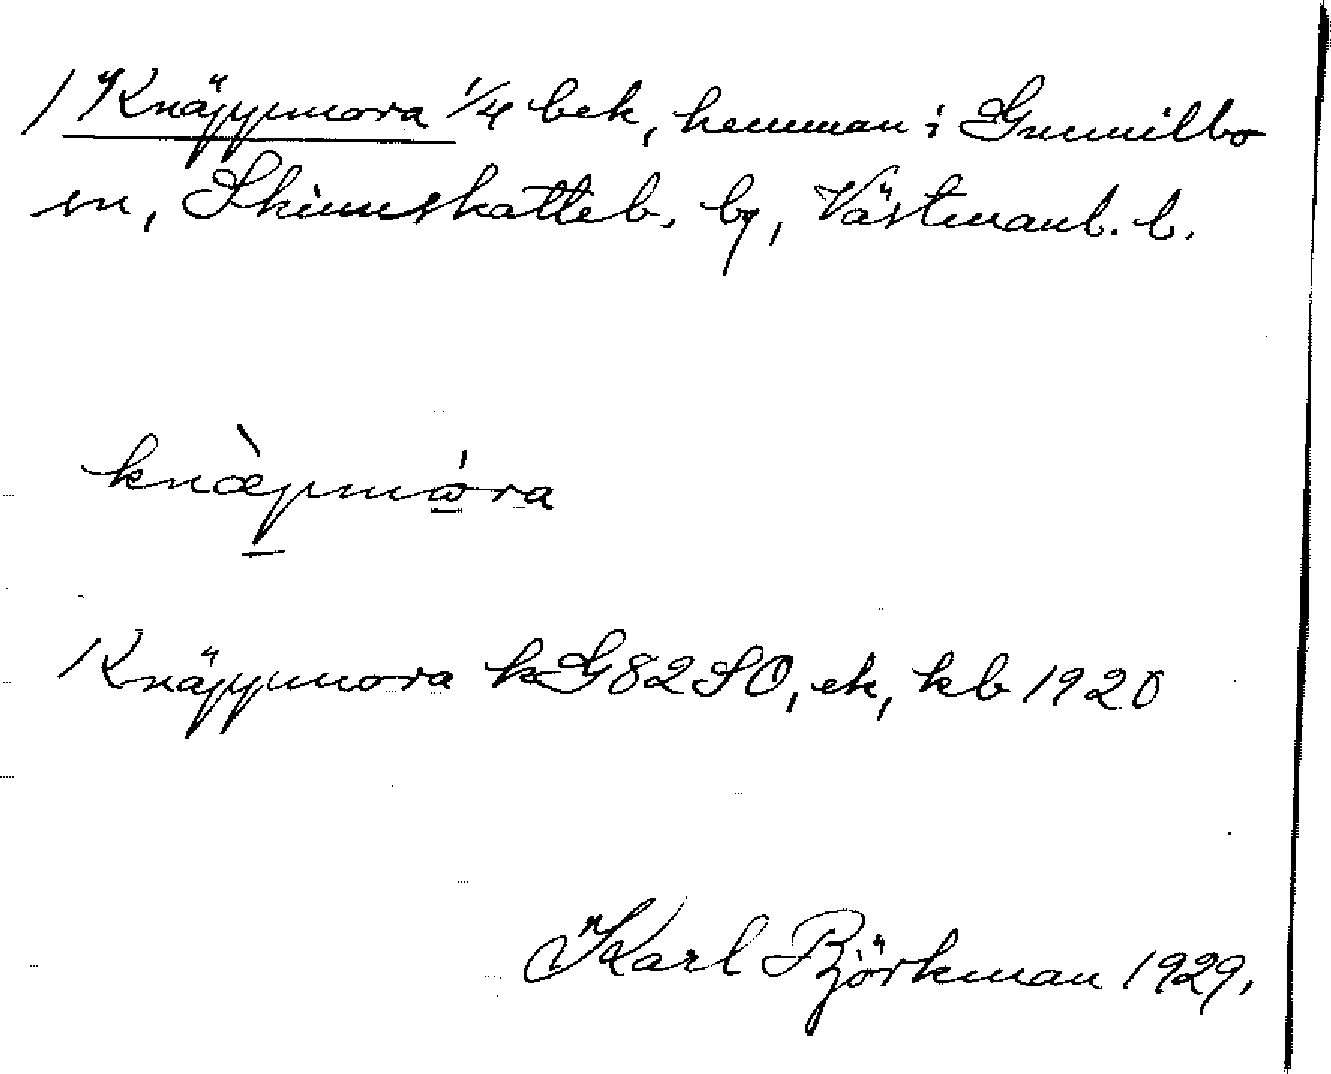 / Knäppmora 1/4 bek, hemman i Gunnilbo
sn, Skinnskatteb. bg, Västmanl. l.
knæ̀pmóra
Knäppmora kG82SO, ek, kb 1920
Karl Björkman 1929.